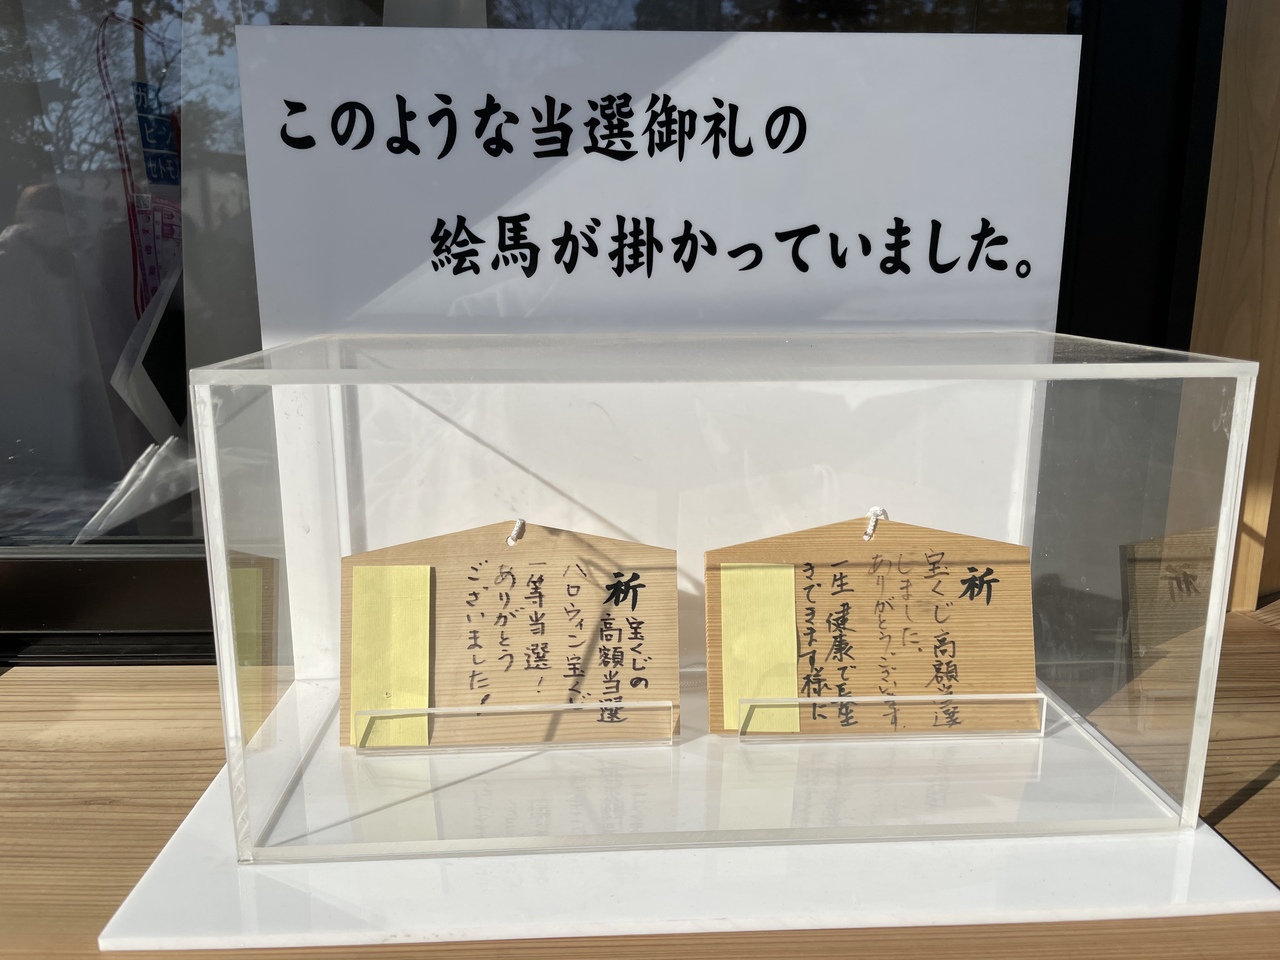 このような当選御礼の
絵馬が掛かっていました。
祈
宝くじの
高額当選
ハロウィン宝くじ
一等当選!
ありがとう
ございました!
祈
宝くじ高額当選
しました。
ありがとうございます。
一生健康で長生
きできます様に